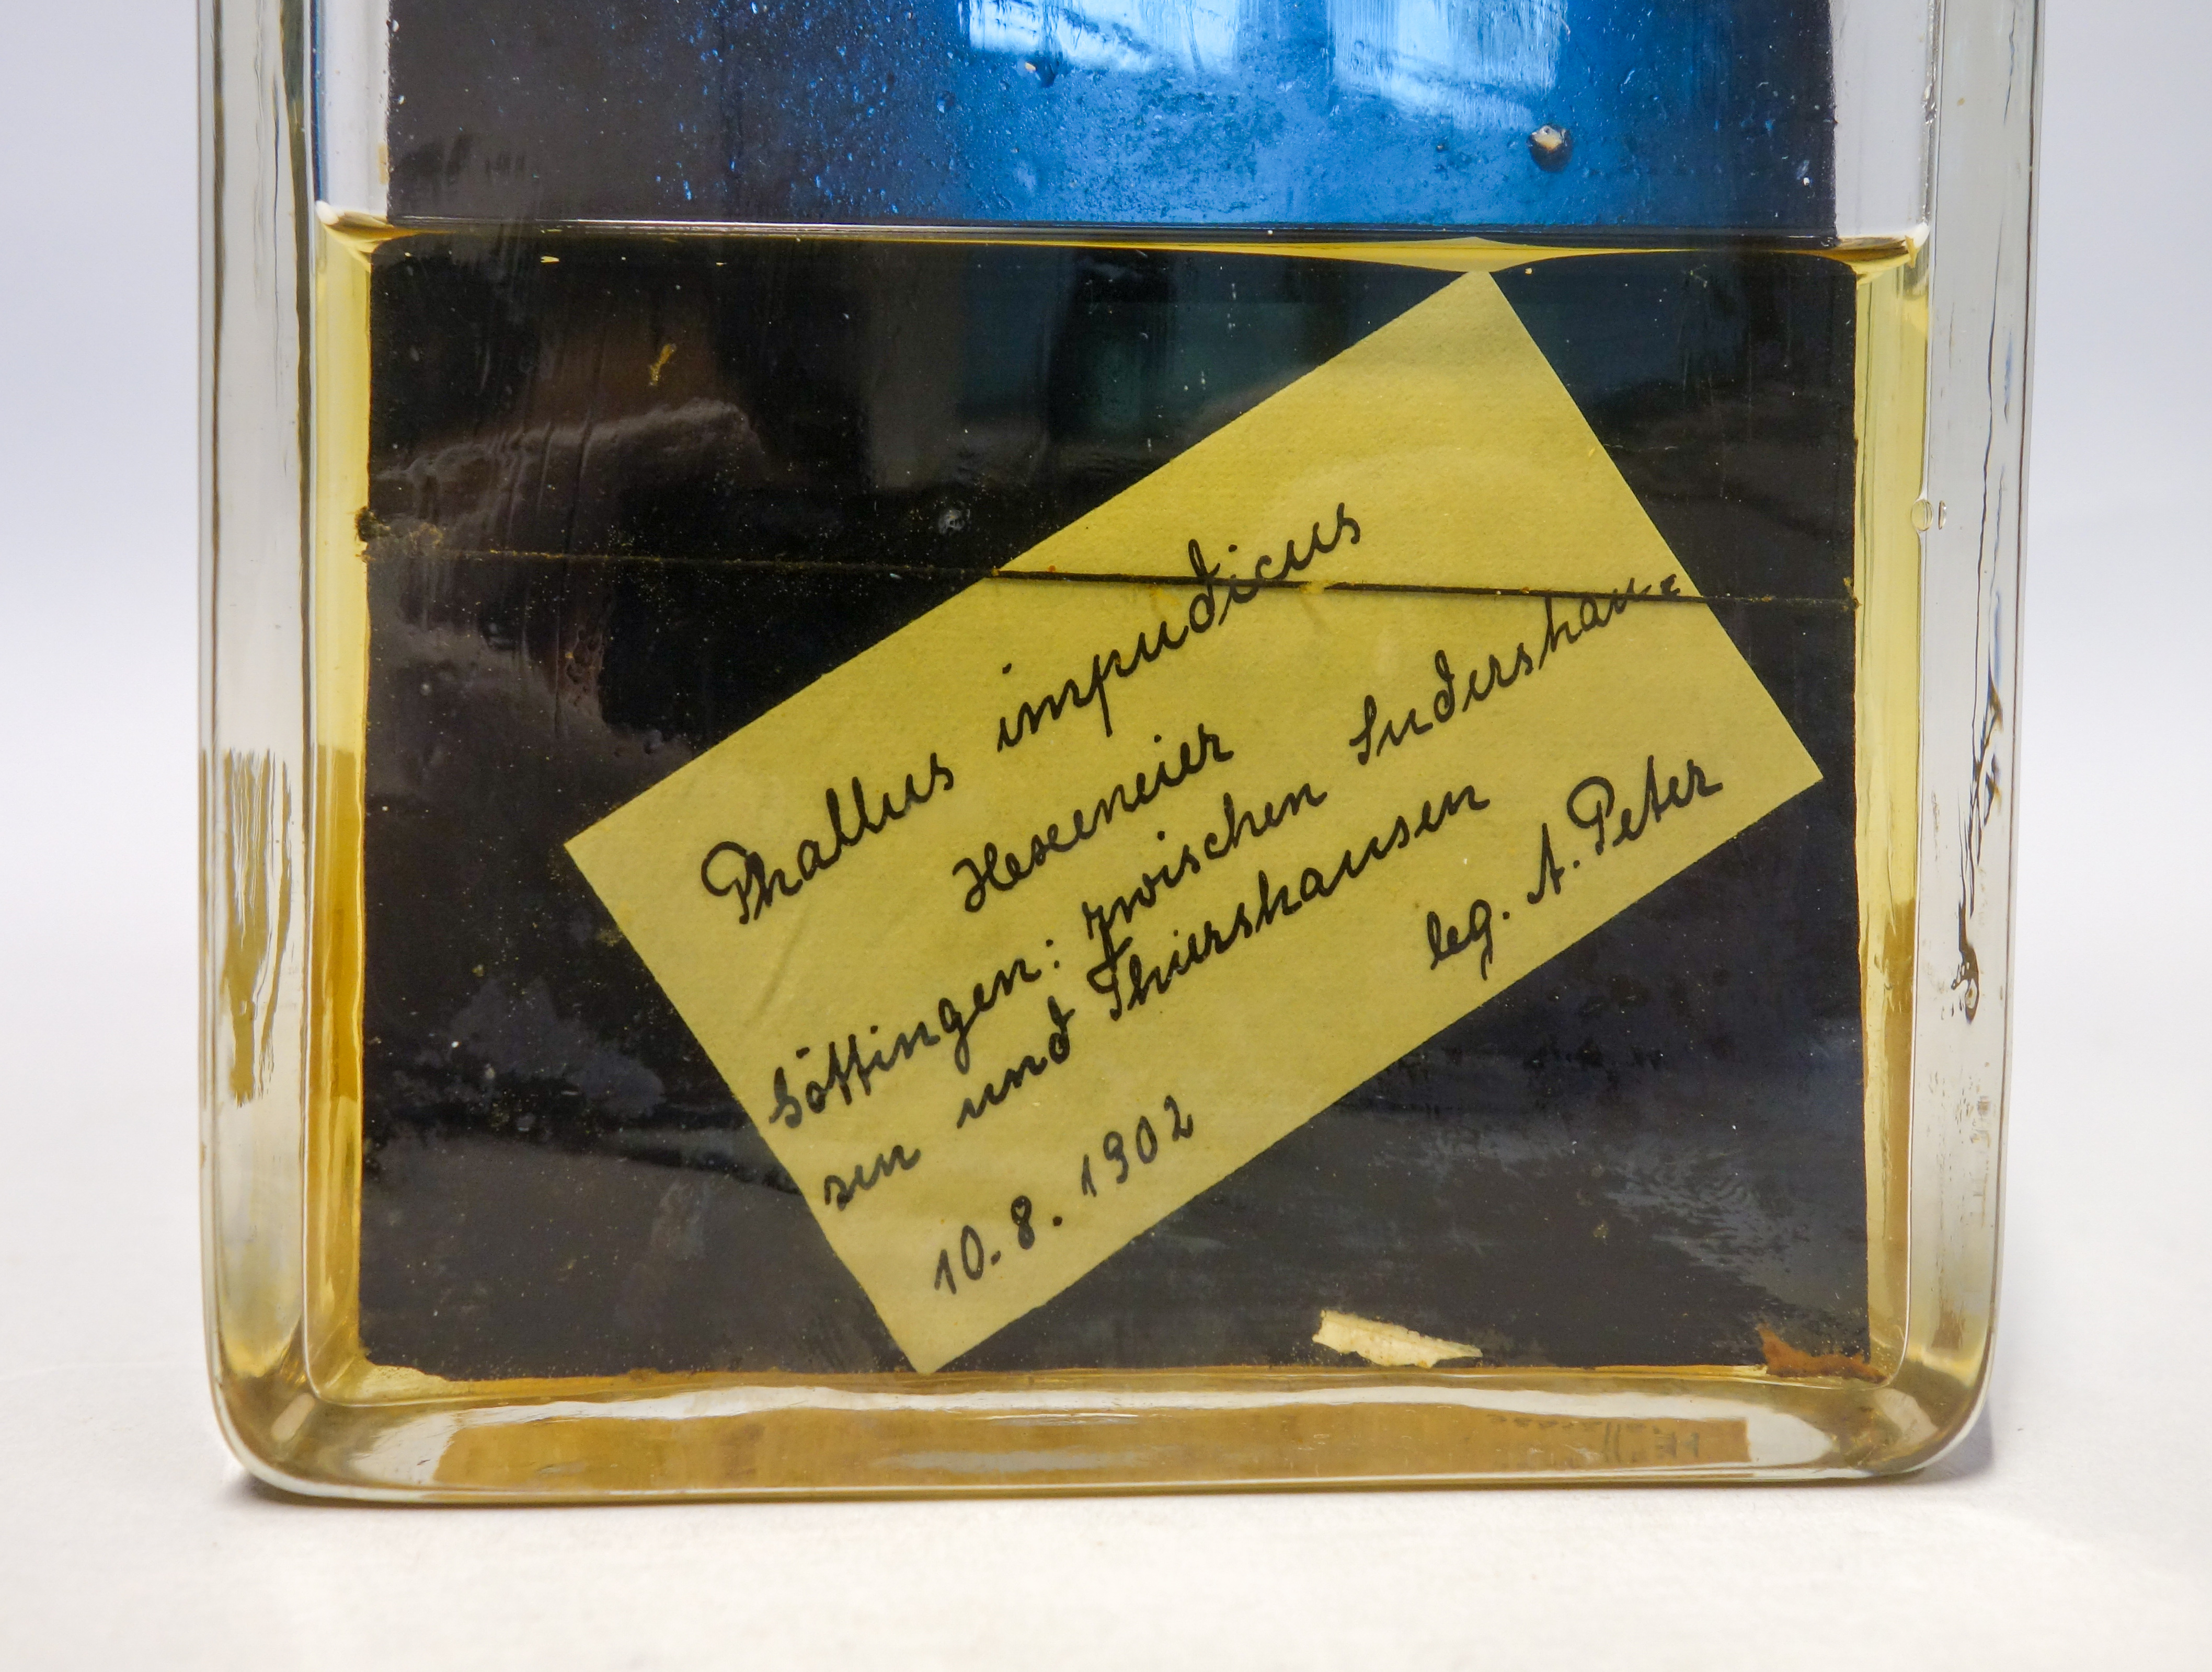 Phallus impudicus
Hexeneier
Göttingen: zwischen Sudershau-
sen und Thiershausen
leg. A. Peter
10.8.1902